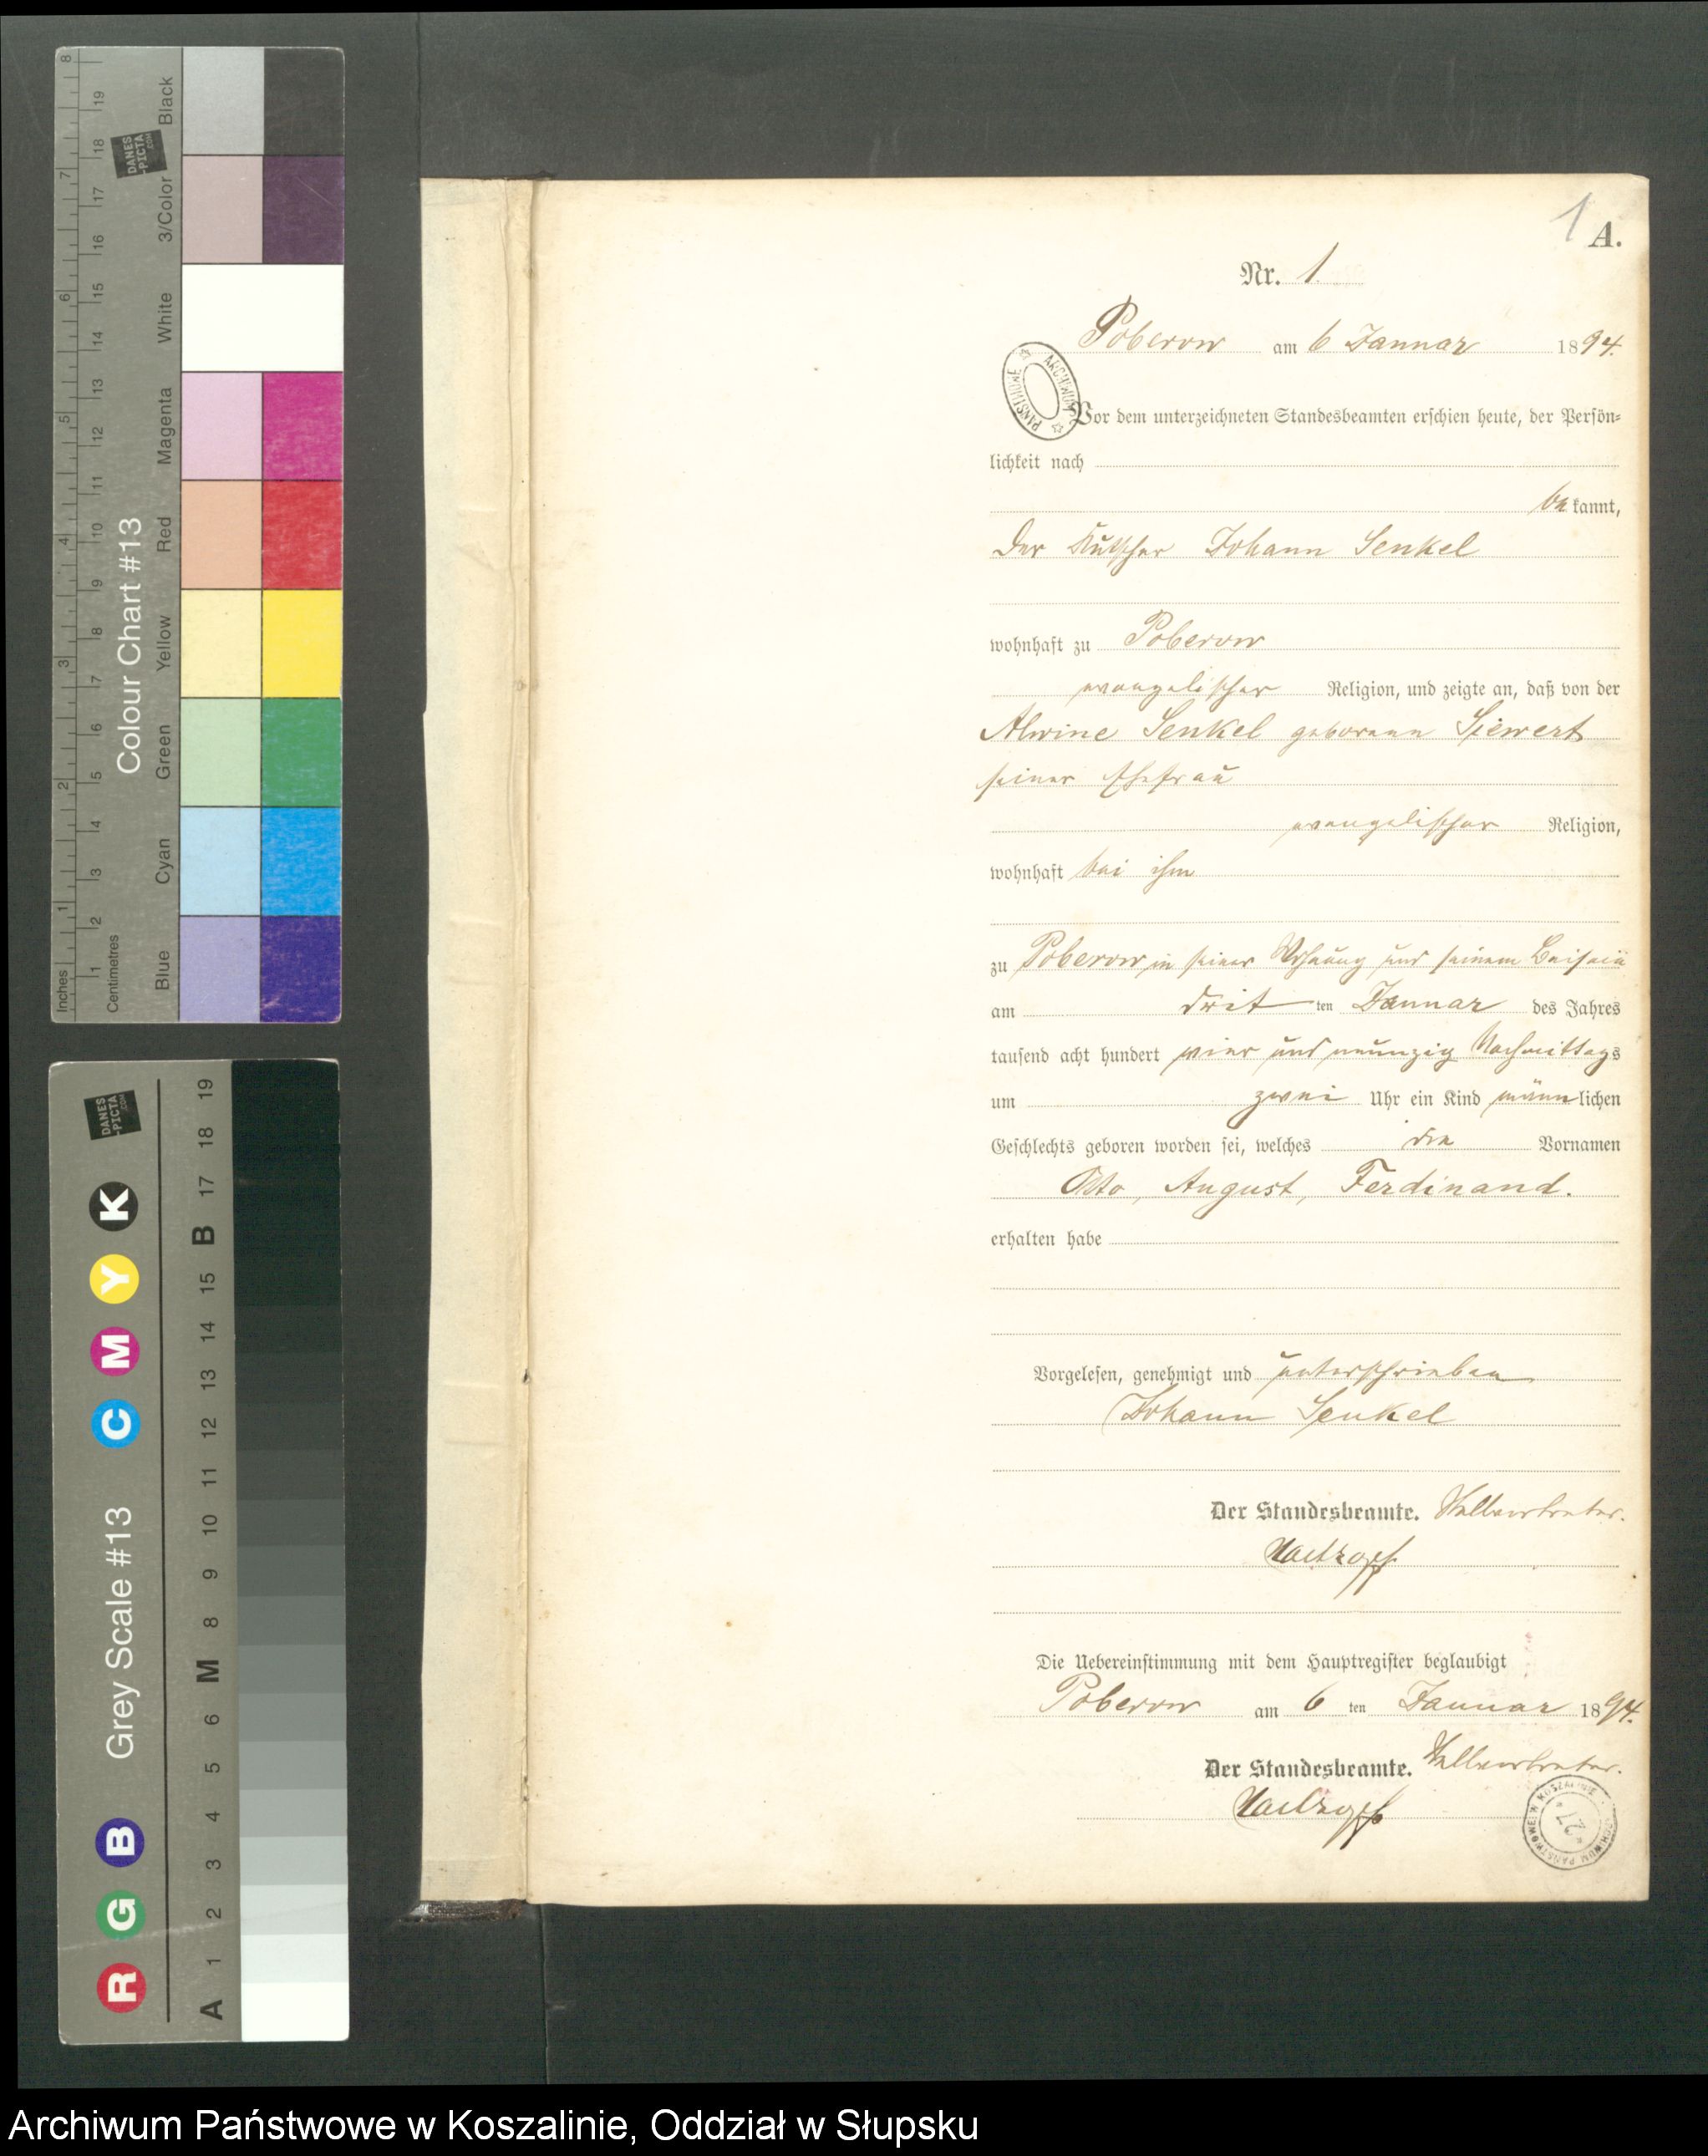 1 A.
Nr. 1.
Poberow am 6 Januar 1894.
Vor dem unterzeichneten Standesbeamten erschien heute, der Persön-
lichkeit nach
be kannt,
der Kutscher Johann Senkel
wohnhaft zu Poberow
evangelischer Religion, und zeigte an, daß von der
Alwine Senkel geborene Siewert
seiner Ehefrau
evangelischer Religion,
wohnhaft bei ihm
zu Poberow in seiner Wohnung und seinem Beisein
am drit ten Januar des Jahres
tausend acht hundert vier und neunzig Nachmittags
um zwei Uhr ein Kind männlichen
Geschlechts geboren worden sei, welches die Vornamen
Otto, August, Ferdinand.
erhalten habe
Vorgelesen, genehmigt und unterschrieben
Johann Senkel
Der Standesbeamte. Stellvertreter.
Die Uebereinstimmung mit dem Hauptregister beglaubigt
Poberow am 6 ten Januar 1894.
Der Standesbeamte. Stellvertreter.
ARCHIWUM PAŃSTWOWE
ARCHIWUM PAŃSTWOWE W KOSZALINIE
27
Inches 1 2 3 4 5 6 7 8
Centimetres 1 2 3 4 5 6 7 8 9 10 11 12 13 14 15 16 17 18 19
DANES
-PICTA
.COM
Colour Chart #13
Blue Cyan Green Yellow Red Magenta White 3/Color Black
DANES
-PICTA
.COM
Grey Scale #13
R G B C M Y K
A 1 2 3 4 5 6 M 8 9 10 11 12 13 14 15 B 17 18 19
Archiwum Państwowe w Koszalinie, Oddział w Słupsku